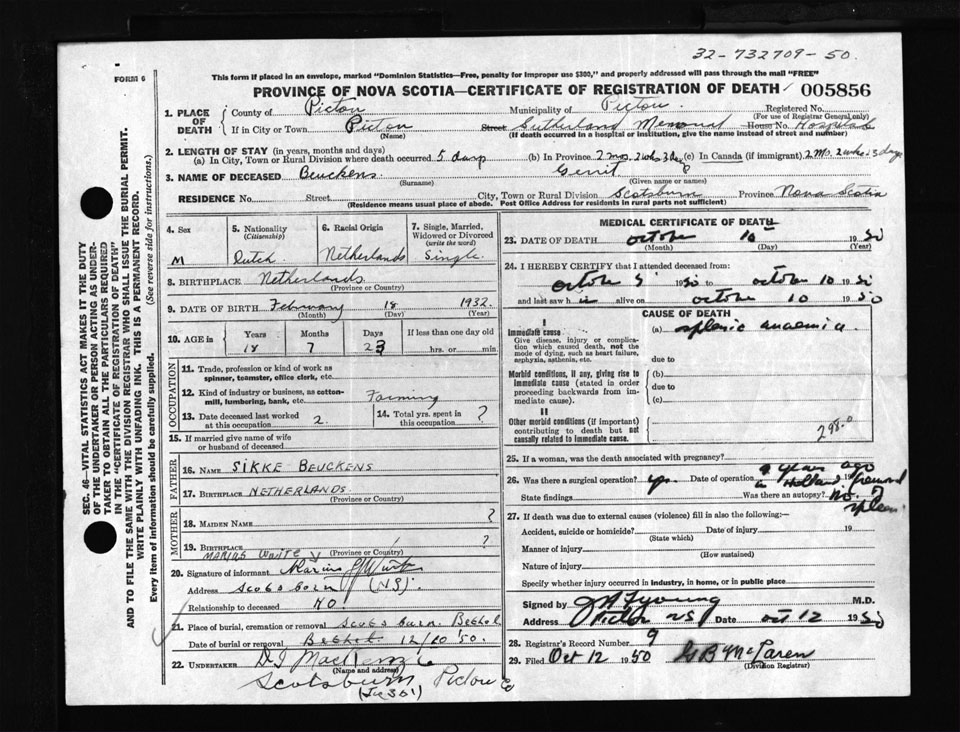 32-732709-50
FORM 6
This form if placed in an envelope, marked "Dominion Statistics—Free, penalty for improper use $300," and properly addressed will pass through the mail "FREE"
PROVINCE OF NOVA SCOTIA—CERTIFICATE OF REGISTRATION OF DEATH 005856
SEC. 46—VITAL STATISTICS ACT MAKES IT THE DUTY
OF THE UNDERTAKER OR PERSON ACTING AS UNDER-
TAKER TO OBTAIN ALL THE PARTICULARS REQUIRED
IN THE "CERTIFICATE OF REGISTRATION OF DEATH"
AND TO FILE THE SAME WITH THE DIVISION REGISTRAR WHO SHALL ISSUE THE BURIAL PERMIT.
WRITE PLAINLY WITH UNFADING INK. THIS IS A PERMANENT RECORD.
Every item of information should be carefully supplied. (See reverse side for instructions.)
1. PLACE OF DEATH
County of Pictou Municipality of Pictou Registered No.
(For use of Registrar General only)
If in City or Town Pictou Street Sutherland Memorial House No. Hospital
(Name) (If death occurred in a hospital or institution, give the name instead of street and number)
2. LENGTH OF STAY (in years, months and days)
(a) In City, Town or Rural Division where death occurred 5 days (b) In Province 2 mos. 2 wks 3 days (c) In Canada (if immigrant) 2 Mos. 2 wks. 3 days
3. NAME OF DECEASED Beuckens Gerrit
(Surname) (Given name or names)
RESIDENCE No. Street City, Town or Rural Division Scotsburn Province Nova Scotia
(Residence means usual place of abode. Post Office Address for residents in rural parts not sufficient)
4. Sex
M
5. Nationality (Citizenship)
Dutch
6. Racial Origin
Netherlands
7. Single, Married, Widowed or Divorced (write the word)
Single
8. BIRTHPLACE Netherlands
(Province or Country)
9. DATE OF BIRTH February 18 1932.
(Month) (Day) (Year)
10. AGE in Years Months Days If less than one day old
18 7 23 hrs. or min.
OCCUPATION
11. Trade, profession or kind of work as
spinner, teamster, office clerk, etc.
12. Kind of industry or business, as cotton-
mill, lumbering, bank, etc. Farming
13. Date deceased last worked
at this occupation 2.
14. Total yrs. spent in
this occupation ?
15. If married give name of wife
or husband of deceased
FATHER
16. NAME SIKKE BEUCKENS
17. BIRTHPLACE NETHERLANDS.
(Province or Country)
MOTHER
18. MAIDEN NAME ?
19. BIRTHPLACE ?
(Province or Country)
20. Signature of informant
Address Scotsborn (NS).
Relationship to deceased NO
21. Place of burial, cremation or removal Scotsburn. Bethel
Date of burial or removal Bethel. 12/10 '50.
22. UNDERTAKER D J MacKenzie
(Name and address)
Scotsburn Pictou Co
MEDICAL CERTIFICATE OF DEATH
23. DATE OF DEATH October 10 1950
(Month) (Day) (Year)
24. I HEREBY CERTIFY that I attended deceased from:
October 5 1950 to October 10 1950
and last saw him alive on October 10 1950
CAUSE OF DEATH
I
Immediate cause (a) splenic anaemia.
Give disease, injury or complica-
tion which caused death, not the
mode of dying, such as heart failure,
asphyxia, asthenia, etc.
due to
Morbid conditions, if any, giving rise to (b)
immediate cause (stated in order due to
proceeding backwards from im-
mediate cause). (c)
II
Other morbid conditions (if important)
contributing to death but not
causally related to immediate cause.
298.0
25. If a woman, was the death associated with pregnancy?
4 years ago
26. Was there a surgical operation? yes. Date of operation in Holland 19 removal
State findings Was there an autopsy? No. of
spleen
27. If death was due to external causes (violence) fill in also the following:—
Accident, suicide or homicide? Date of injury 19
(State which)
Manner of injury
(How sustained)
Nature of injury
Specify whether injury occurred in industry, in home, or in public place
Signed by M.D.
Address Pictou NS Date Oct 12 1950
28. Registrar's Record Number 9
29. Filed Oct 12 1950 G B McLaren
(Division Registrar)